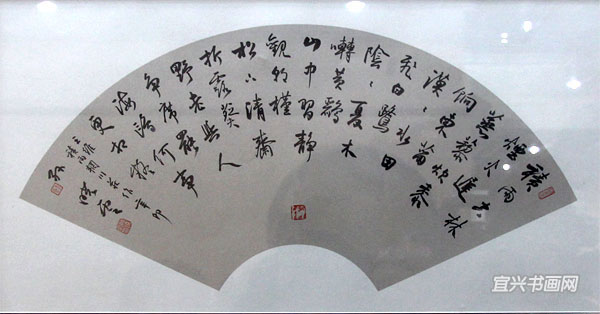 積雨空林
煙火遲
蒸藜炊黍
餉東菑
漠々水田
飛白鷺
陰々夏木
囀黃鸝
山中習靜
觀朝槿
松下清齋
折露葵
野老與人
爭席罷
海鷗何事
更相疑
王維積雨輞川莊作辛卯
宜兴书画网